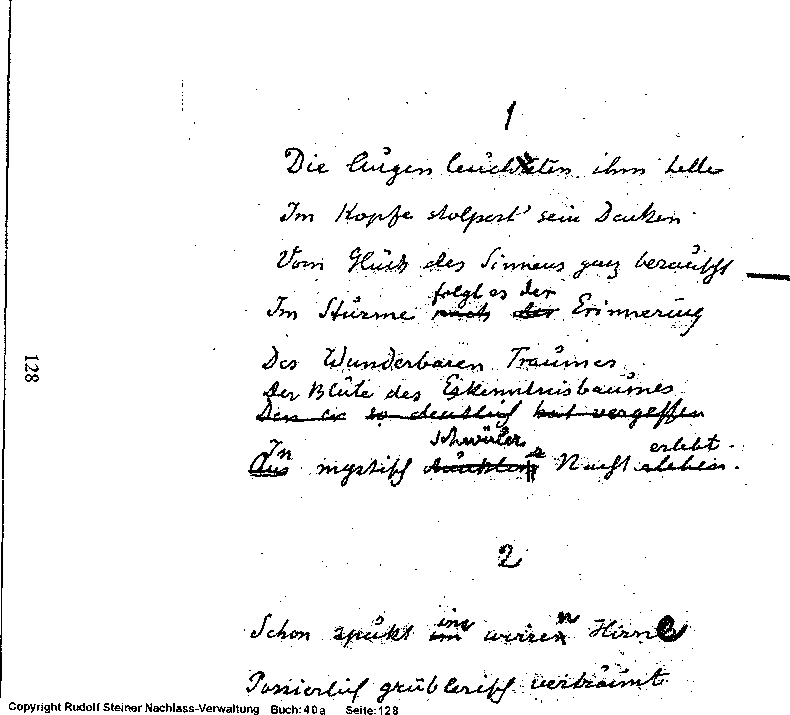 1
Die Augen leuchteten ihm helle
Im Kopfe stolpert sein Denken
Vom Glück des Sinnens ganz berauscht
folgt es der
Im Sturme nach der Erinnerung
Des Wunderbaren Traumes
Der Blüte des Erkenntnisbaumes
Den er so deutlich hat vergessen
In schwüler erlebt.
Aus mystisch dunklen Nacht erleben.
2
ins n
Schon spukt im wirren Hirn
Possierlich grüblerisch verträumt
128
Copyright Rudolf Steiner Nachlass-Verwaltung Buch:40a Seite:128